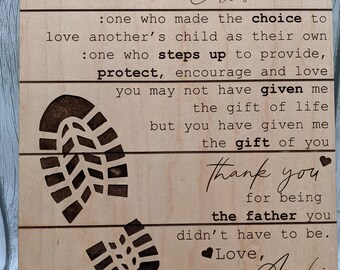 :one who made the choice to
love another's child as their own
:one who steps up to provide,
protect, encourage and love
you may not have given me
the gift of life
but you have given me
the gift of you
thank you
for being
the father you
didn't have to be.
Love,